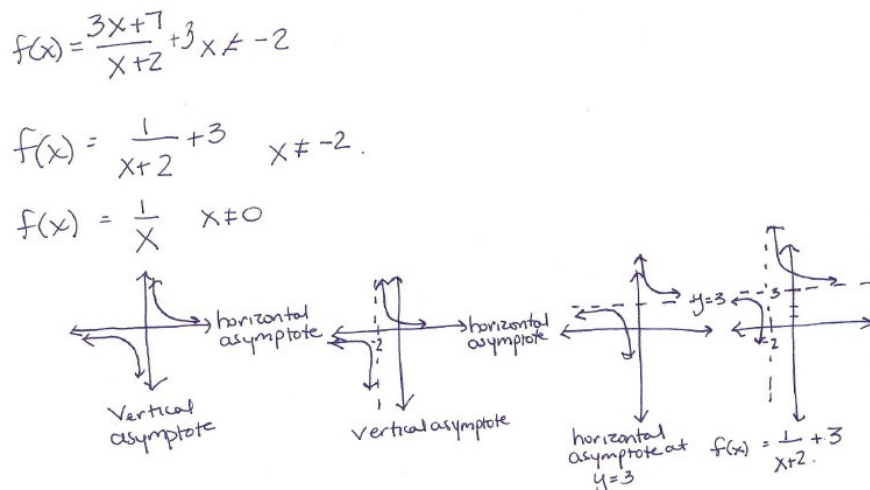 f(x) = 3x+7/x+2 +3 x ≠ -2
f(x) = 1/x+2 +3 x ≠ -2.
f(x) = 1/x x ≠ 0
horizontal
asymptote
Vertical
asymptote
-2
horizontal
asymptote
vertical asymptote
y=3
horizontal
asymptote at
y=3
3
-2
f(x) = 1/x+2. +3